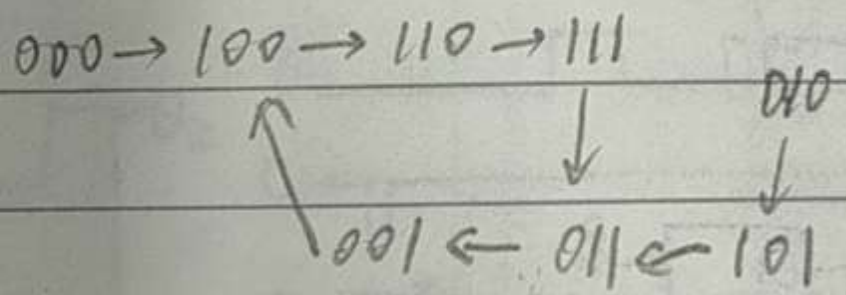 000 → 100 → 110 → 111
010
001 ← 011 ← 101